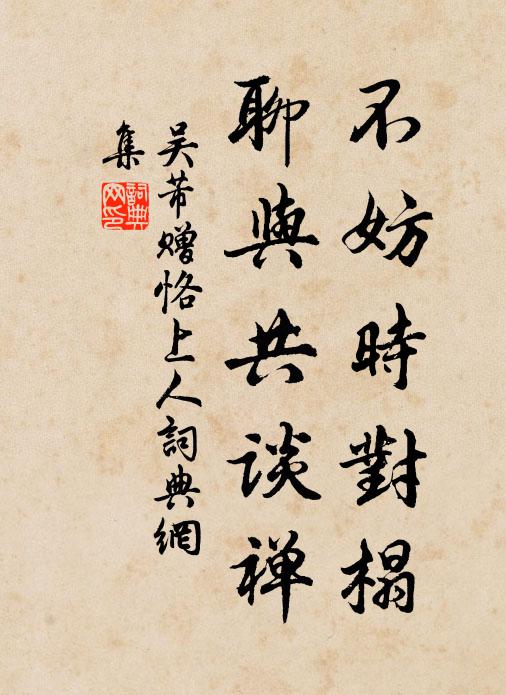 不妨時對榻
聊與共談禅
吴芾赠恪上人詞典網
集
詞典
网印